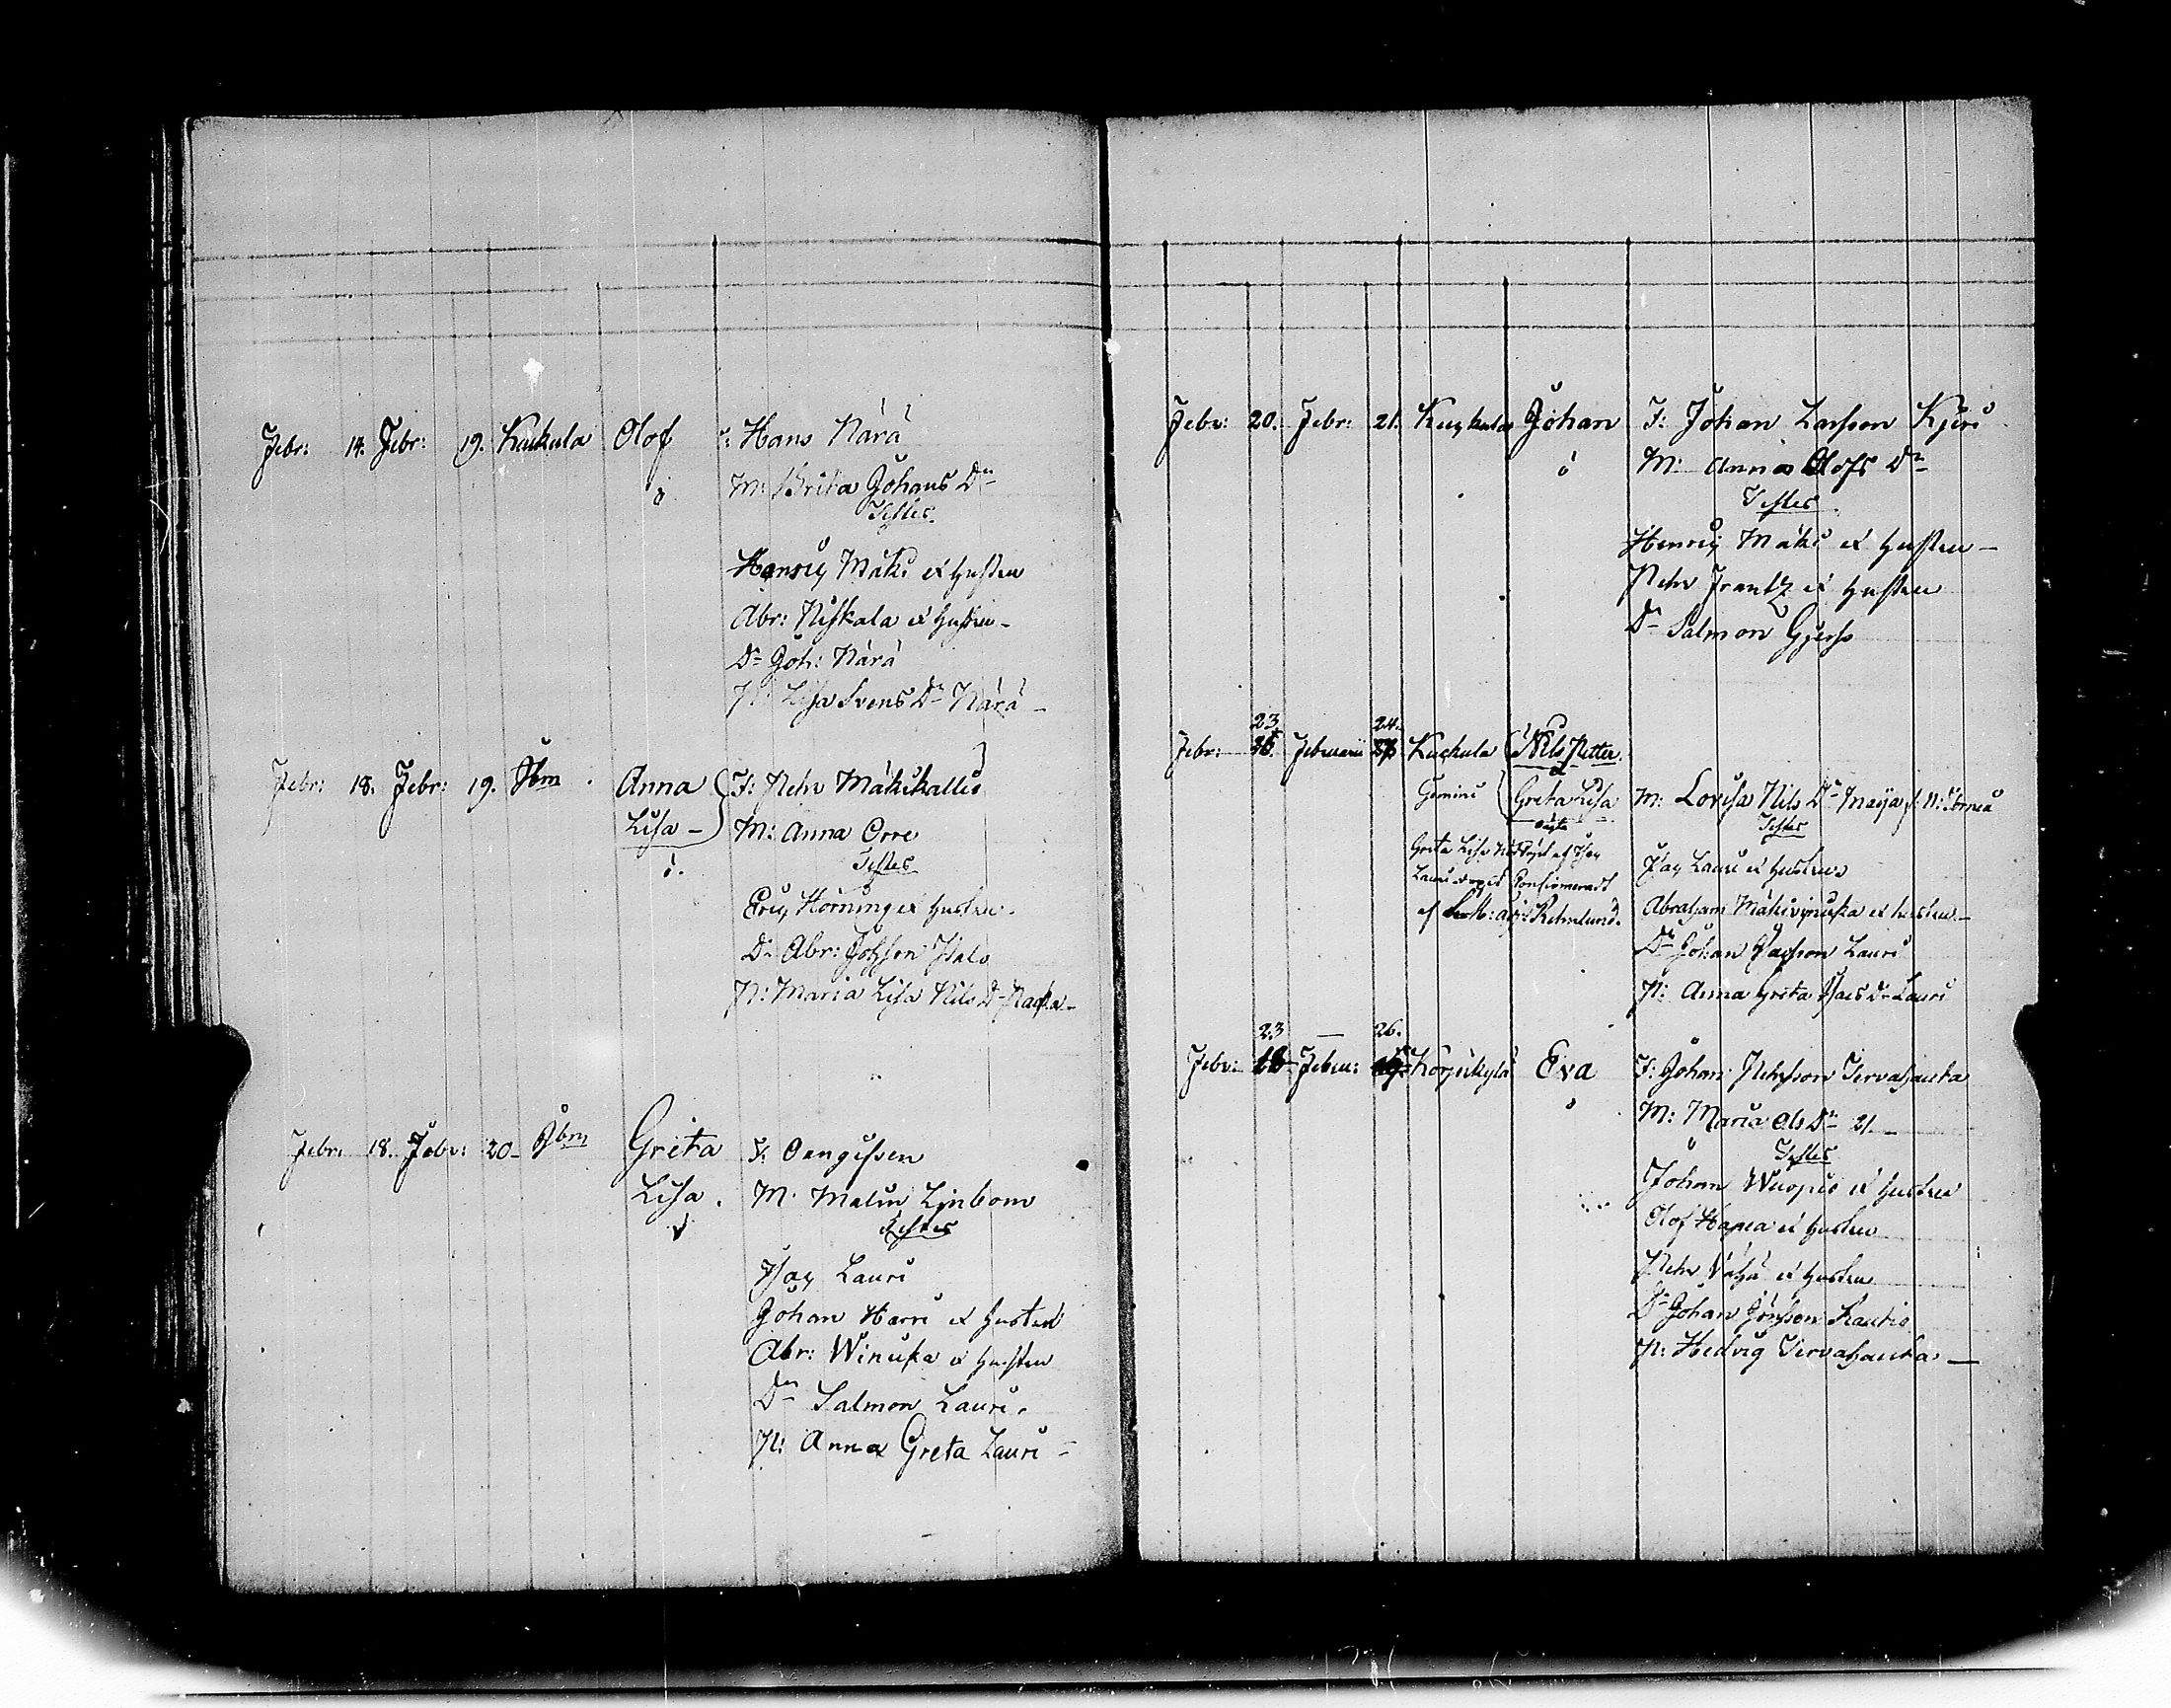 Febr: 14. Febr: 19. Kuckula Olof F: Hans Närä
M: Brita Johans Dr
Testes
Henric Mäki et hustru
Abr: Niskala et hustru -
Dr Joh: Närä
P: Lisa Svens Dr Närä -
Febr: 18. Febr: 19. Ibm Anna F: Petter Mäkikallio
Lisa - M: Anna Orre
Testes
Eric Horning et hustru.
Dr Abr: Johsson Palo
P: Maria Lisa Nils Dr
Febr: 18. Febr: 20 - Ibm Greta F:
Lisa. M: Malin Linbom
Testes
Isac Lauri
Johan Harri et hustru
Abr: Winuka et hustru
Dr Salmon Lauri.
P: Anna Greta Lauri -
Febr: 20. Febr: 21. Kuckula Johan F: Johan Larsson Kjeri
M: Anna Olofs Dr
Testes
Henric Mäki et hustru -
Petter Frantz et hustru
Dr Salmon
23. 24.
Febr: Februarii Kuckula Nils Petter.
&
Gemini Greta Lisa M: Lovisa Nils Dr Maija
Testes
Greta Lisa nöddöpt af Isac Isac Lauri et hustru
Lauri dopet Confirmeradt Abraham et hustru -
af Dr Johan Isacsson Lauri
P: Anna Greta Isacs Dr Lauri
23 - 26.
Febr: Febru: Korpikylä Eva F: Johan Pehrsson Tervahauta
M: Maria Ols Dr 21. -
Testes
Johan Wuopio et hustru
Olof Hapea et hustru
Petter et hustru
Dr Johan Jönsson Rautio
P: Hedvig Tervahauta. -